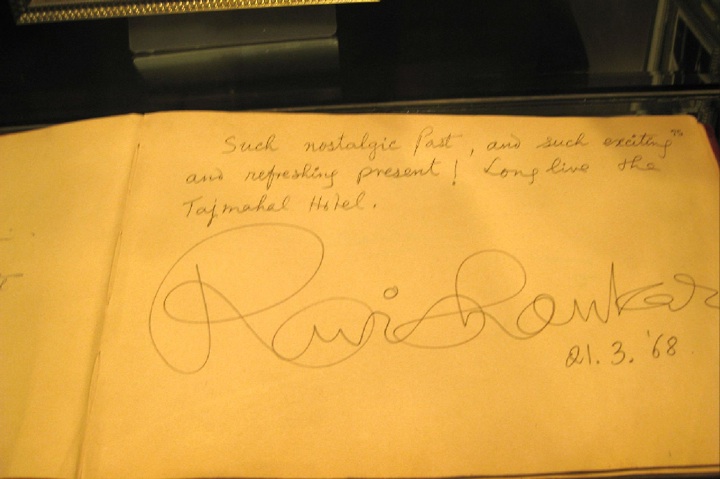 Such nostalgic Past, and such exciting
and refreshing present! Long live the
Tajmahal Hotel.
Ravi Shankar
21.3.'68